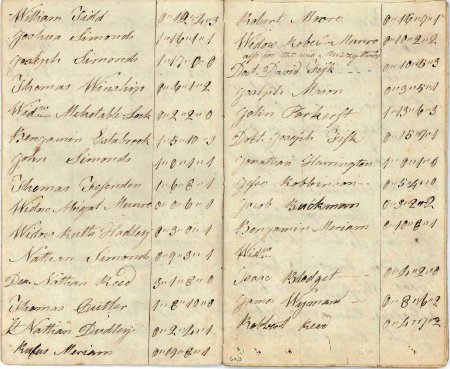 William Tidd 0"12"4"3
Joshua Simonds 1"16"1"1
Joseph Simonds 1"17"0"0
Thomas Winship 0"6"1"2
Widw Mehetabl Lock 0"2"2"0
Benjamin Estabrook 1"5"10"3
John Simonds 1"0"1"1
Thomas Fessenden 1"6"8"1
Widow Abigal Munro 0"0"6"0
Widow Ruth Hadley 0"3"0"1
Nathan Simonds 0"9"3"1
Dea Nathan Reed 3"1"8"0
Thomas Cutler 1"8"10"0
Lt Nathan Dudley 0"2"4"1
Rufus Meriam 0"19"8"1
Robert Moore 0"16"9"1
Widow Robec Munro 0"10"2"2
Doct David Fisk 0"10"8"3
Joseph Mason 0"3"5"1
John Parkerst 1"13"6"3
Doct. Joseph Fisk 0"15"7"1
Jonathan Harrington 1"0"1"0
Jesse Robbinson 0"5"4"0
Jacob Buckman 0"9"2"2
Benjamin Meriam 0"10"8"1
Widw
Isaac Blodget 0"4"2"0
James Wyman 0"8"6"2
Robbert Reed 0"4"7"2